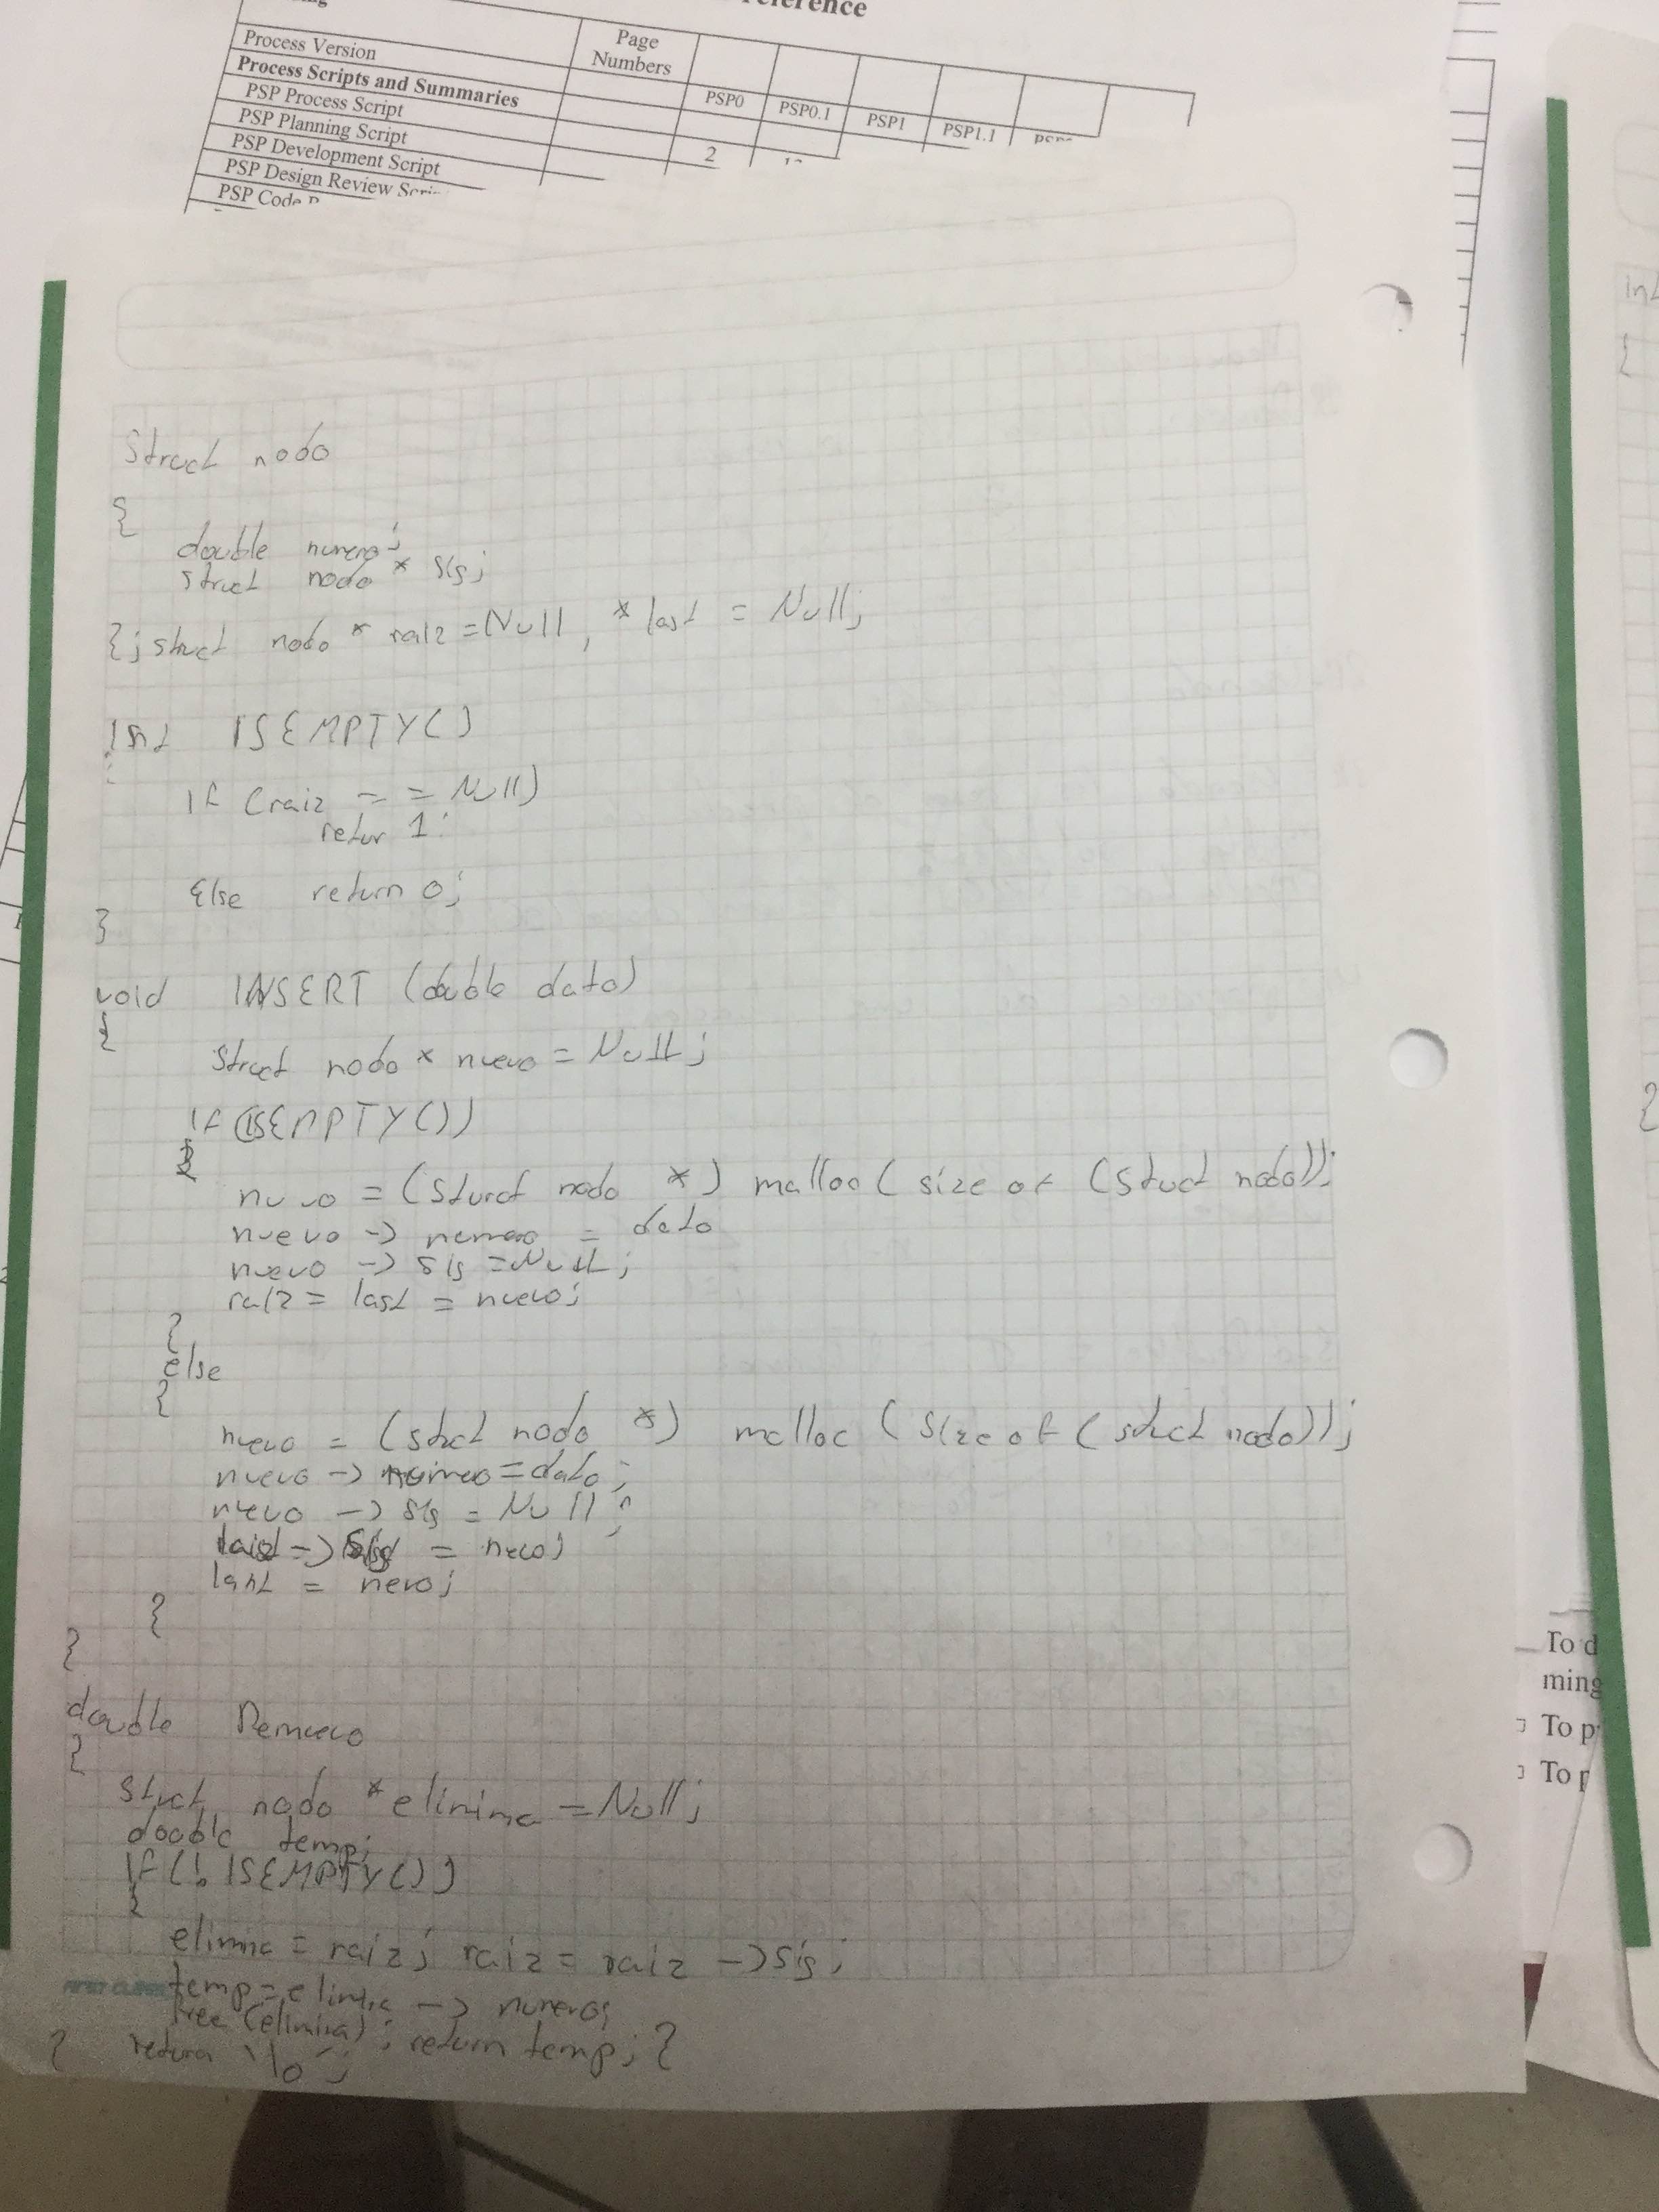 Process Version
Page
Numbers
Process Scripts and Summaries
PSP0
PSP0.1
PSP1
PSP1.1
PSP Process Script
2
PSP Planning Script
PSP Development Script
PSP Design Review
PSP Code
Struct nodo
{
double numero;
struct nodo * sig;
}; struct nodo * raiz = Null, * last = Null;
Int ISEMPTY()
If (raiz == Null)
retur 1;
Else return 0;
}
void INSERT (double dato)
{
Struct nodo * nuevo = Null;
If (ISEMPTY())
{
nuvo = (Sturct nodo *) malloc (size of (Stuct nodo));
nuevo -> numero = dato
nuevo -> sig = Null;
raiz = last = nuevo;
}
else
{
nuevo = (stuct nodo *) malloc (Size of (stuct nodo));
nuevo -> numero = dato;
nuevo -> sig = Null;
last -> sig = nuevo;
last = nevo;
}
}
double Remuevo
{
Stuct nodo * elinina = Null;
double temp;
If (! ISEMPTY())
{
elimina = raiz; raiz = raiz -> sig;
temp = elimina -> numero;
free (elimina); return temp; }
} return '\0';
To d
ming
To p
To p